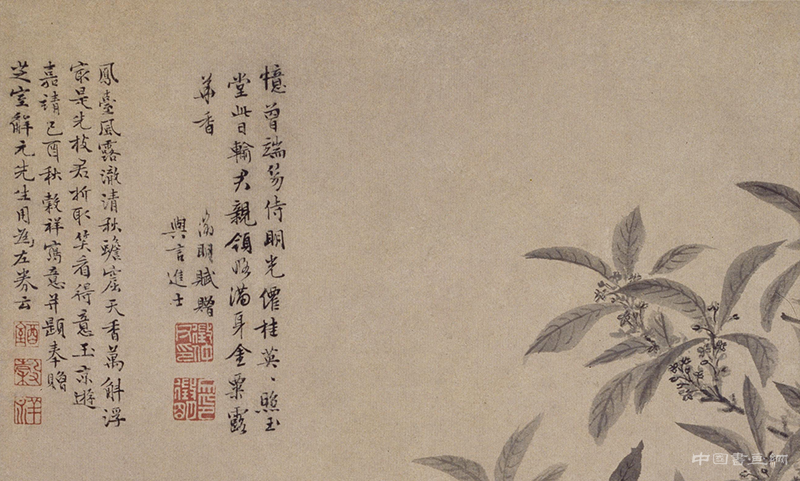 憶曾端笏侍明光僊桂英〻照玉
堂此日輸君親領略滿身金粟露
華香
徵明賦贈
與言進士
鳳臺風露澈清秋蟾窟天香萬斛浮
家是先枝君折取笑看得意玉京遊
嘉靖己酉秋穀祥寫意并題奉贈
芝室解元先生用為左券云
穀祥
中国书画网